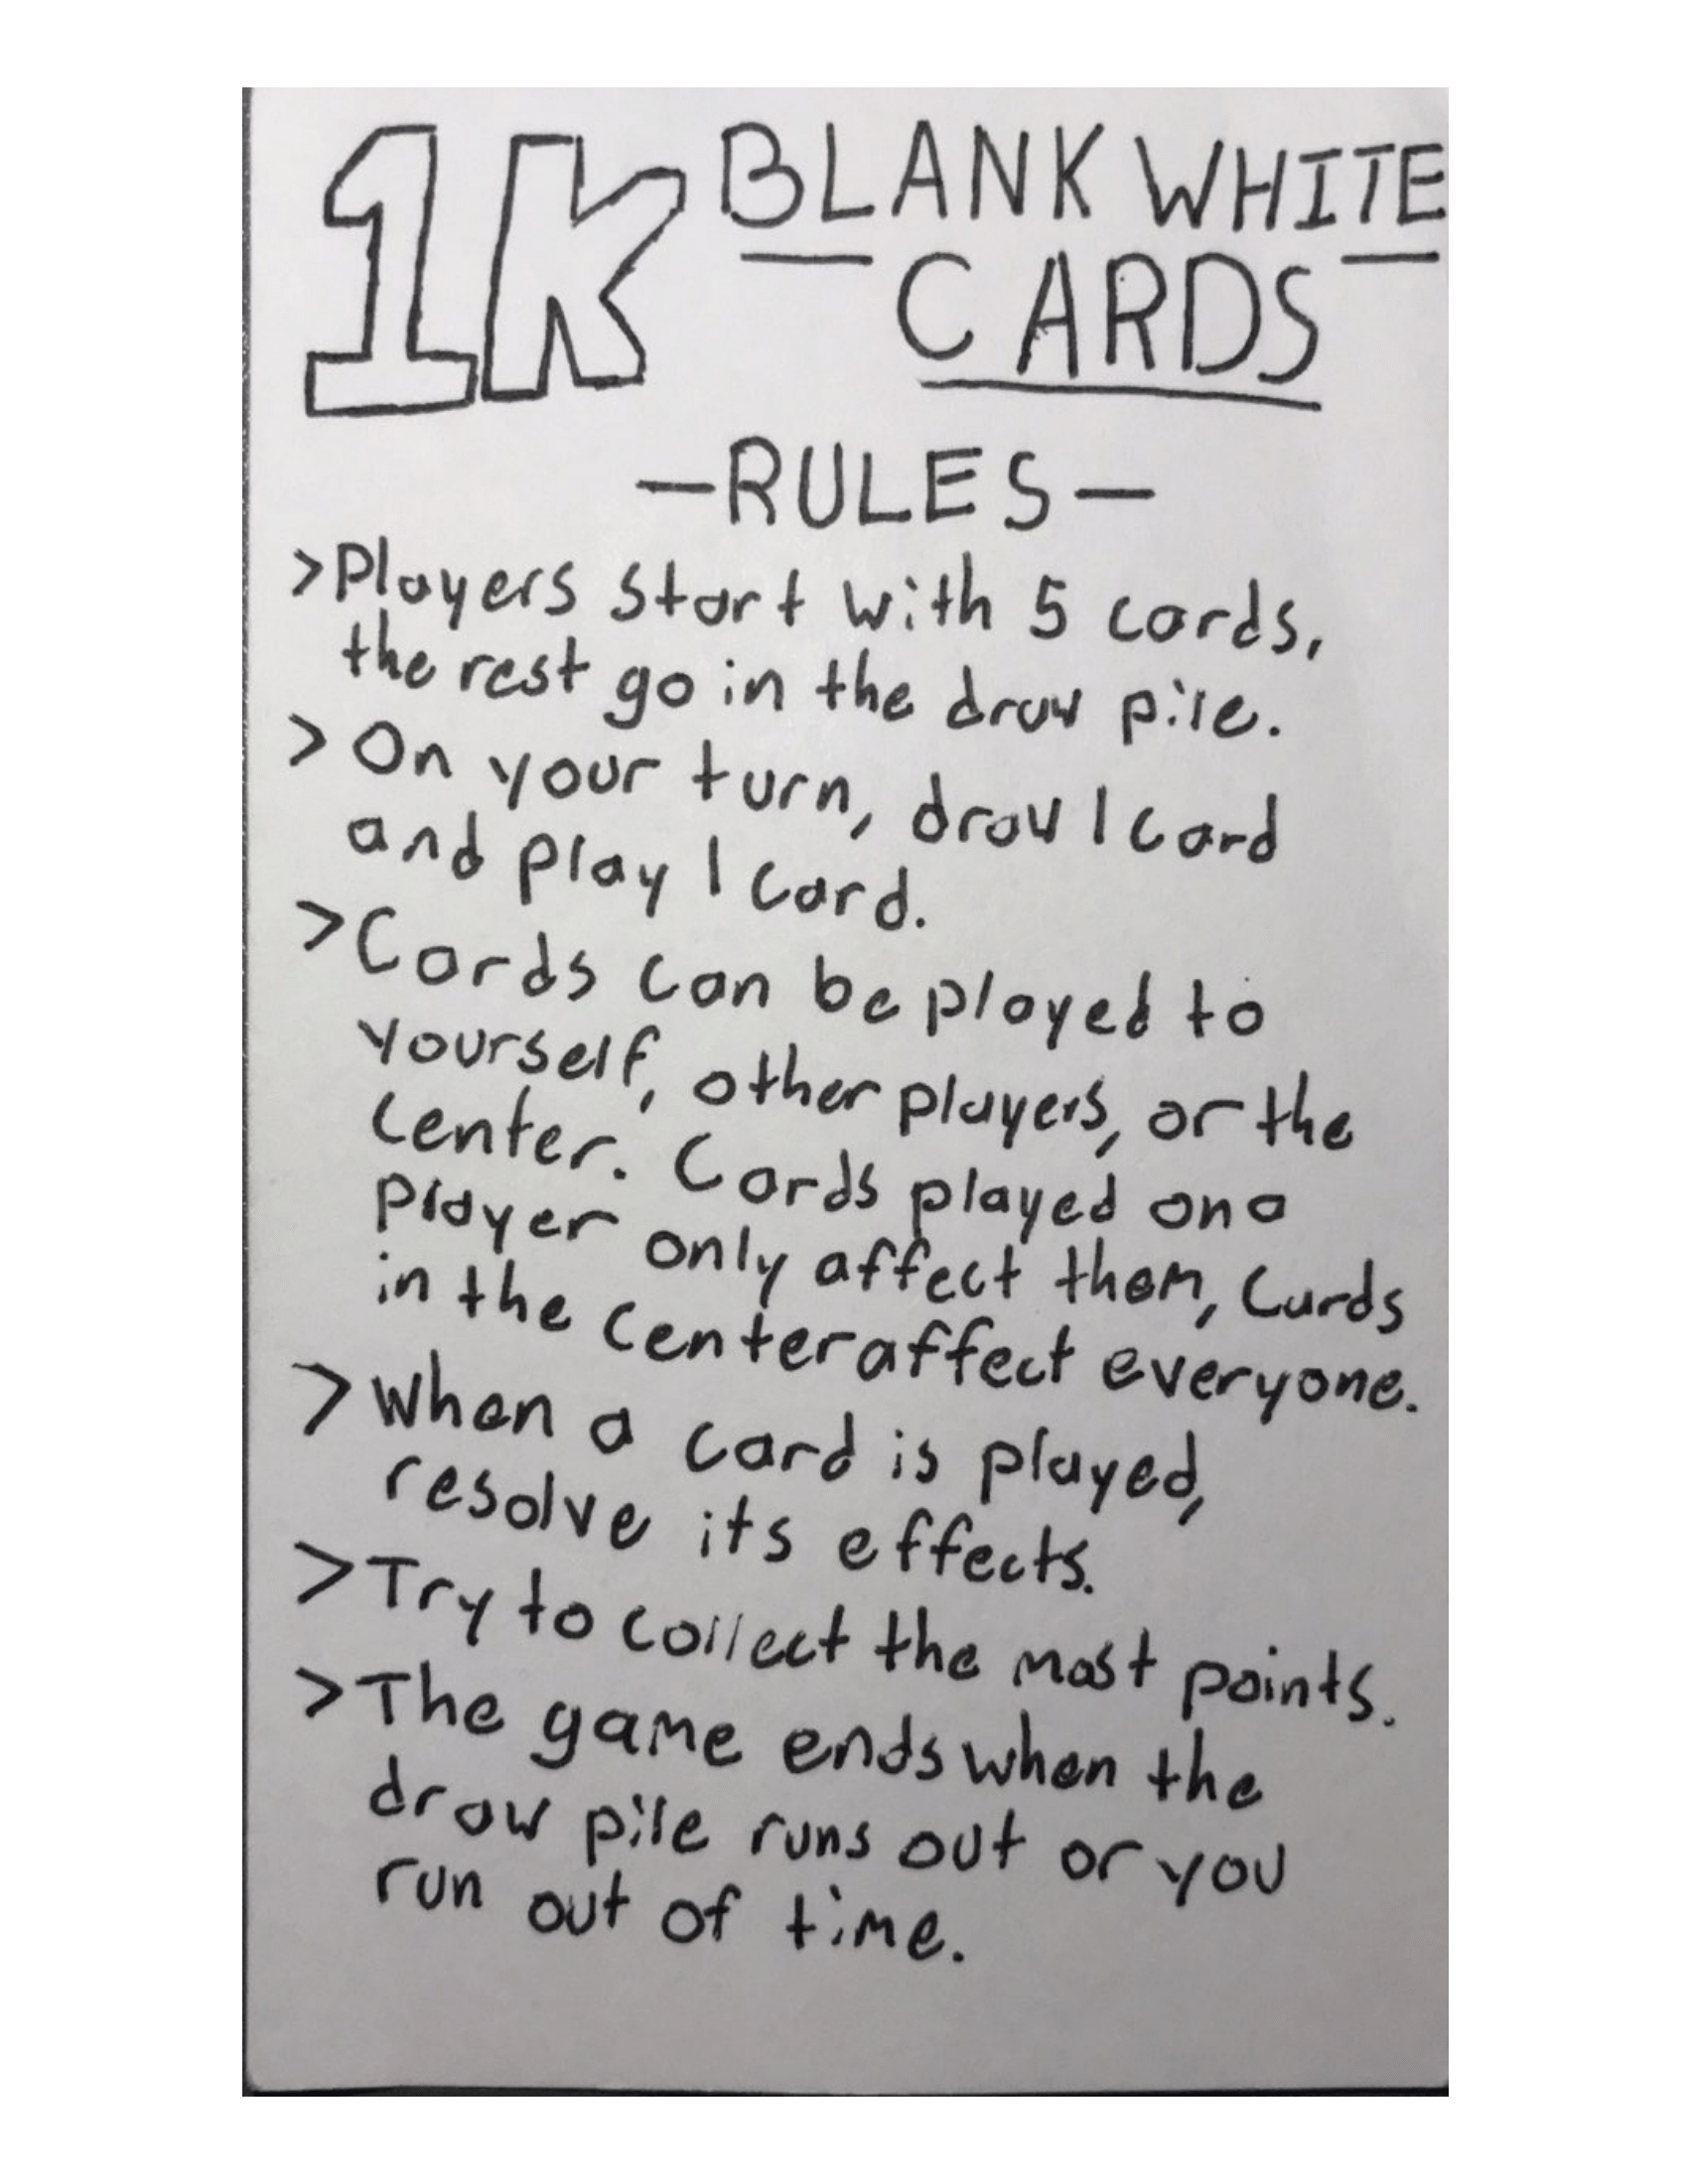 1K BLANK WHITE
CARDS
-RULES-
>Players start with 5 cards,
the rest go in the draw pile.
> On your turn, draw 1 card
and play 1 card.
>Cards can be played to
yourself, other players, or the
center. Cards played on a
player only affect them, Cards
in the center affect everyone.
> When a card is played,
resolve its effects.
>Try to collect the most points.
>The game ends when the
draw pile runs out or you
run out of time.